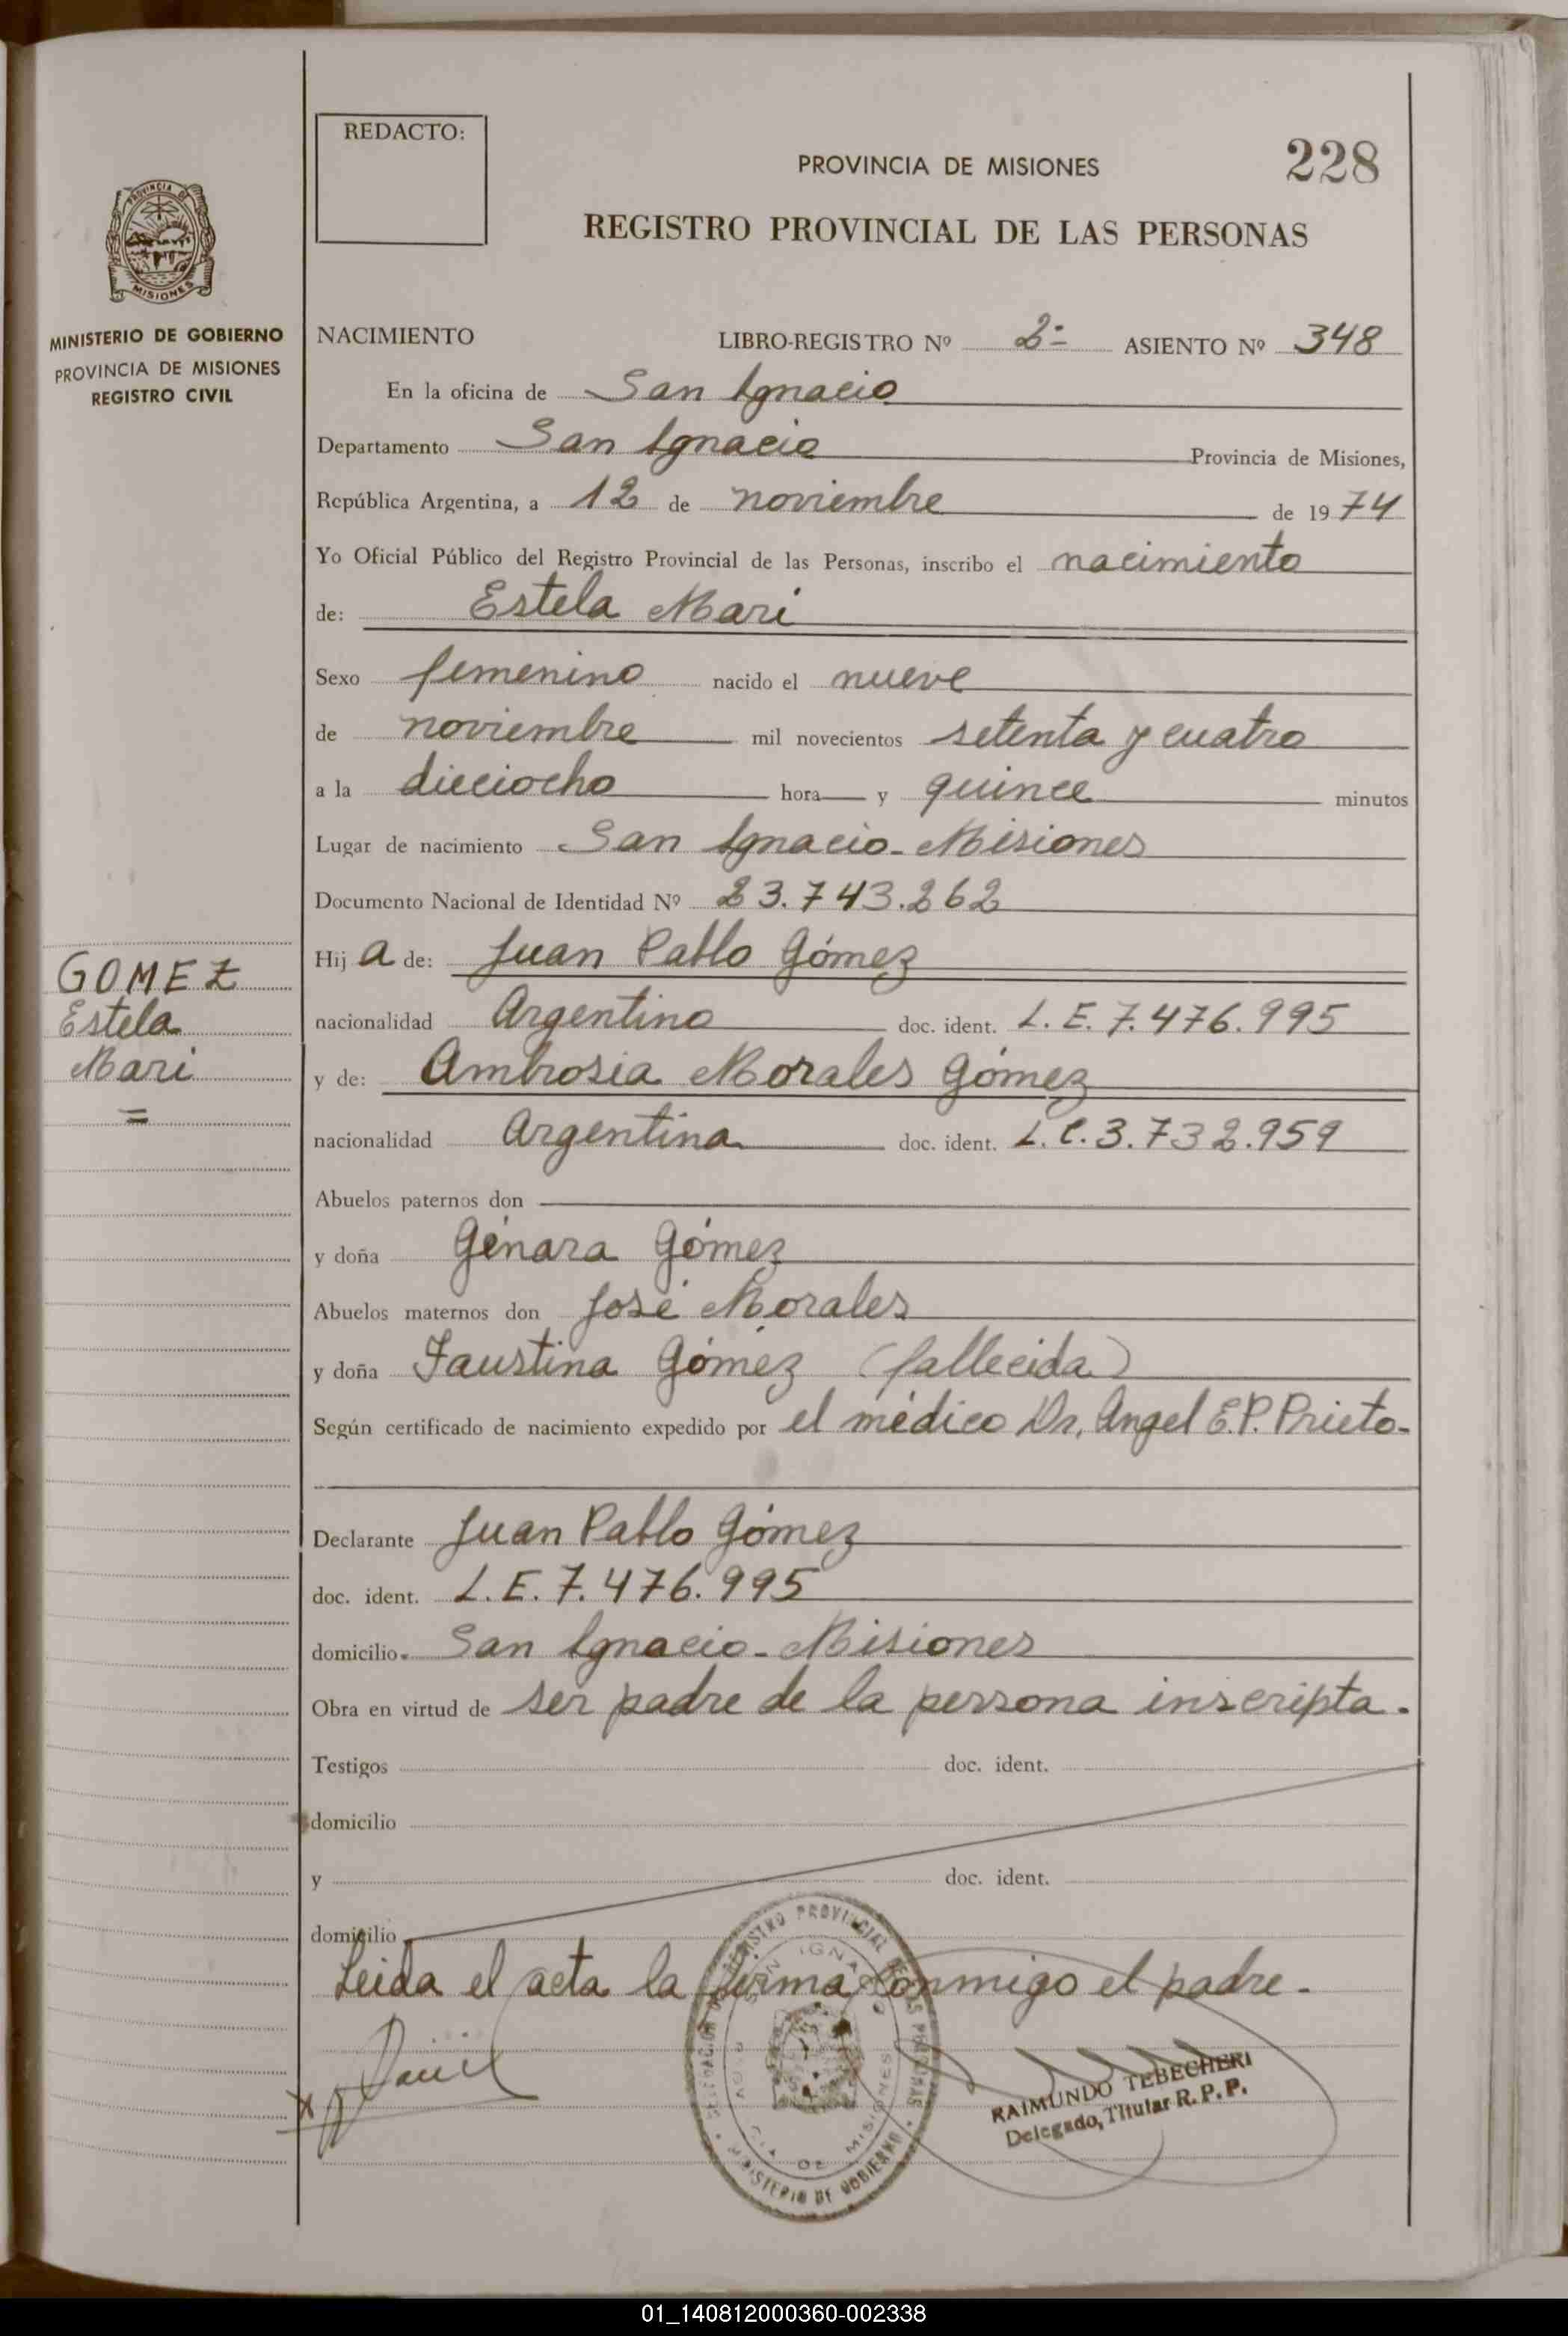 REDACTO:
PROVINCIA DE MISIONES
228
REGISTRO PROVINCIAL DE LAS PERSONAS
PROVINCIA DE
MISIONES
MINISTERIO DE GOBIERNO
PROVINCIA DE MISIONES
REGISTRO CIVIL
NACIMIENTO LIBRO-REGISTRO Nº 2- ASIENTO Nº 348
En la oficina de San Ignacio
Departamento San Ignacio Provincia de Misiones,
República Argentina, a 12 de noviembre de 1974
Yo Oficial Público del Registro Provincial de las Personas, inscribo el nacimiento
de: Estela Mari
Sexo femenino nacido el nueve
de noviembre mil novecientos setenta y cuatro
a la dieciocho hora y quince minutos
Lugar de nacimiento San Ignacio - Misiones
Documento Nacional de Identidad Nº 23.743.262
GOMEZ
Estela
Mari
=
Hija de: Juan Pablo Gómez
nacionalidad Argentino doc. ident. L.E. 7.476.995
y de: Ambrosia Morales Gómez
nacionalidad Argentina doc. ident. L.C. 3.732.959
Abuelos paternos don
y doña Génara Gómez
Abuelos maternos don José Morales
y doña Faustina Gómez (fallecida)
Según certificado de nacimiento expedido por el médico Dr. Angel E.P. Prieto-
Declarante Juan Pablo Gómez
doc. ident. L.E. 7.476.995
domicilio San Ignacio - Misiones
Obra en virtud de ser padre de la persona inscripta.
Testigos doc. ident.
domicilio
y doc. ident.
domicilio
Leida el acta la firma conmigo el padre.
REGISTRO PROVINCIAL DE LAS PERSONAS
SAN IGNACIO
MISIONES
MINISTERIO DE GOBIERNO
x
RAIMUNDO TEBECHERI
Delegado, Titular R.P.P.
01_140812000360-002338